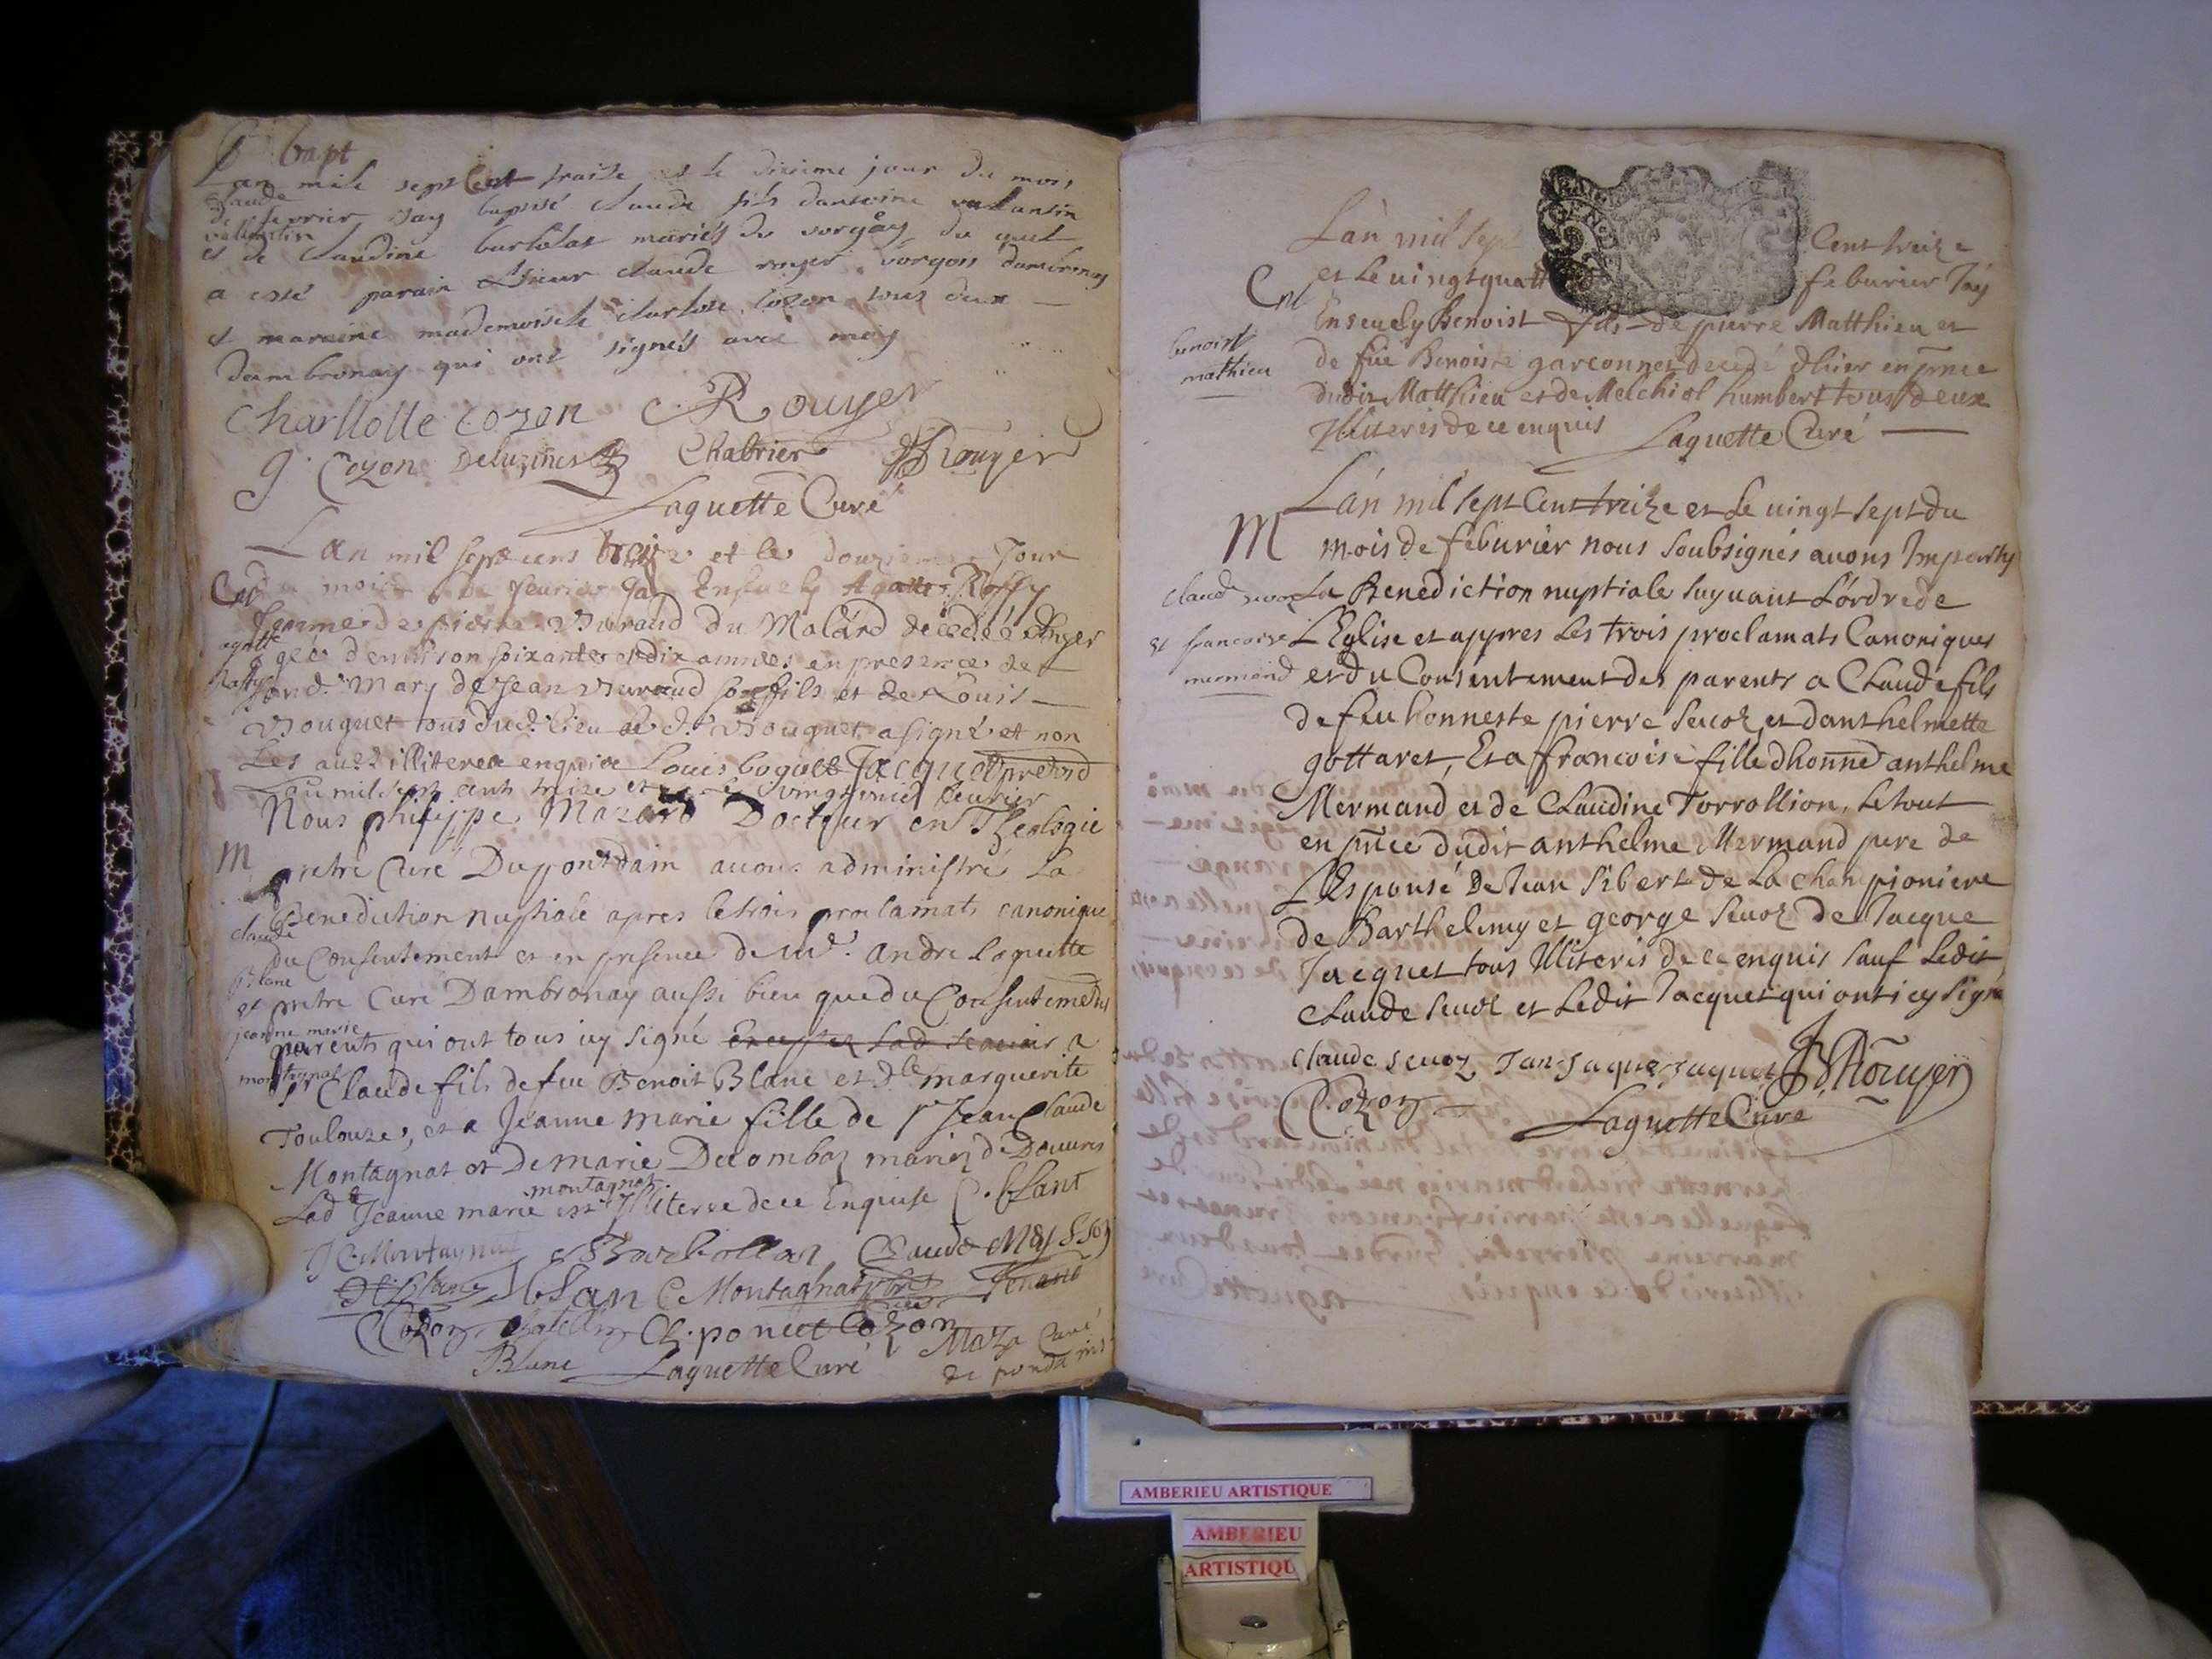 bapt
Lan mile sept Cent traize et le disieme jour du mois
claude
de fevrier jay baptisé claude fils dantoine vallantin
vallentin
et de claudine burlolat mariés du vorgay du quel
a esté parain sieur claude royer borgois dambronay
et maraine mademoiselle charlote cozon tous deux
dambronay qui ont signés avec moy
Charllotte cozon C Rouyer
g. Cozon Deluzines Chabrier Rouyer
Laguette Curé
Lan mil sept cens treize et le douzieme Jour
du mois de feurier Jay Ensuely Agatte Roffy
femme de pierre Buraud du Molard decedée dhyer
agatte
agée denuiron soixante et dix années en presence de
Roffy
sond. mary de Jean Buraud son fils et de Louis
Bouquet tous dud. lieu led. Bouquet a signé et non
Les autres illiteres enquis Louis boquet Jacquet
Lan mil sept cent treize et le vingtunie feurier
Nous philippe Mazard Docteur en Theologie
M
pretre Curé Dupontdain auons administré La
Benediction nuptiale apres le trois proclamats canonique
claude
du Consentement et en presence de Mr. andre Laguette
Blanc
et pretre Curé Dambronay aussi bien que du Consentement des
jeanne marie
parents qui ont tous icy signé a
montagnat
Sr Claude fils de feu Benoit Blanc et dlle marguerite
Toulouze, et a Jeanne marie fille de Sr Jean Claude
Montagnat et De marie Decombaz mariez de Douures
montagnat
Lad. Jeanne marie est Illiterée de ce Enquise C. blanc
J C Montagnat Claude
blan C Montagnat
Cozon Cozon
Maza Curé
Blanc Laguette Curé de pondains
Lán mil sept Cent treize
et Le uingt quatre feburier Jay
benoist
mathieu
Enseuely Benoist fils de pierre Matthieu et
de fúe Benoiste garconnet decedé dhier en pnce
dudit Matthieu et de Melchiol humbert tous deux
Illiteris de ce enquis Laguette Curé
Lán mil sept Cent treize et Le uingt sept du
M mois de feburier nous soubsignés auons Imparty
claude seuoz La Benediction nuptiale suyuant Lórdre de
et francoise L'Eglise et appres Les trois proclamats Canoniques
mermand et du Consentement des parents a Claude fils
de feu honneste pierre seuoz, et danthelmette
gottaret, Et a francoise fille dhonne anthelme
Mermand et de Claudine Torrollion, Le tout
en pnce dudit anthelme Mermand pere de
LEspouse De Jean Sibert de La championiere
de Barthelemy et george seuoz de Jacque
Jacquet tous Illiteris de ce enquis sauf Ledit
Claude seuoz et Ledit Jacquet qui ont icy signe
claude seuoz Jan Jaque jaquet Rouyer
Cozon
Laguette Curé
AMBERIEU ARTISTIQUE
AMBERIEU
ARTISTIQU